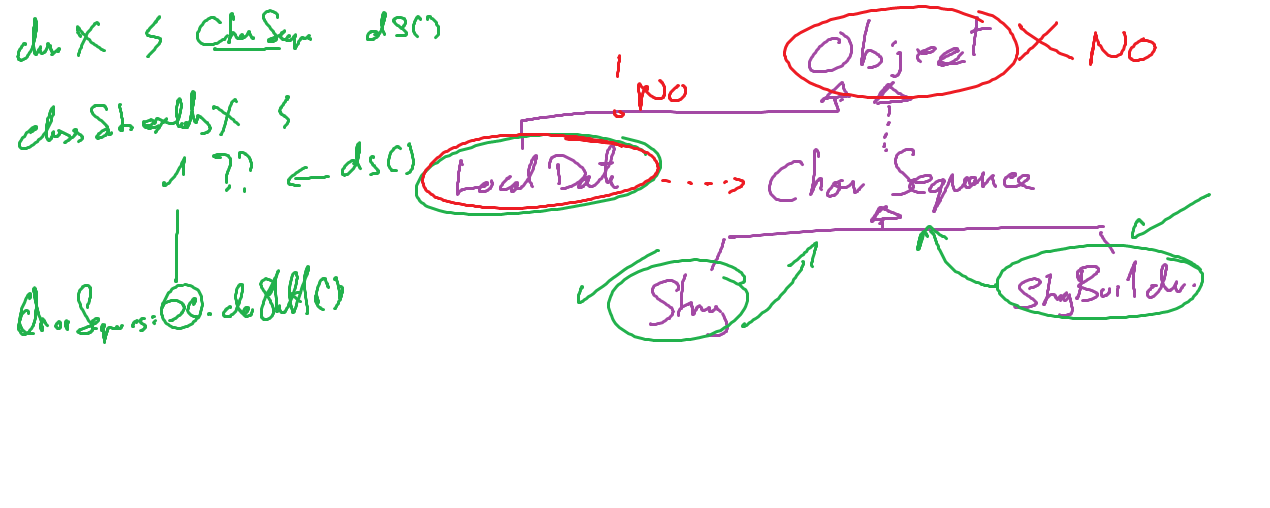 class X { CharSeque ds()
class Sub extends X {
?? ← ds()
CharSequence: . doStuff()
Object X NO
NO
Local Date
Char Sequence
String
StringBuilder